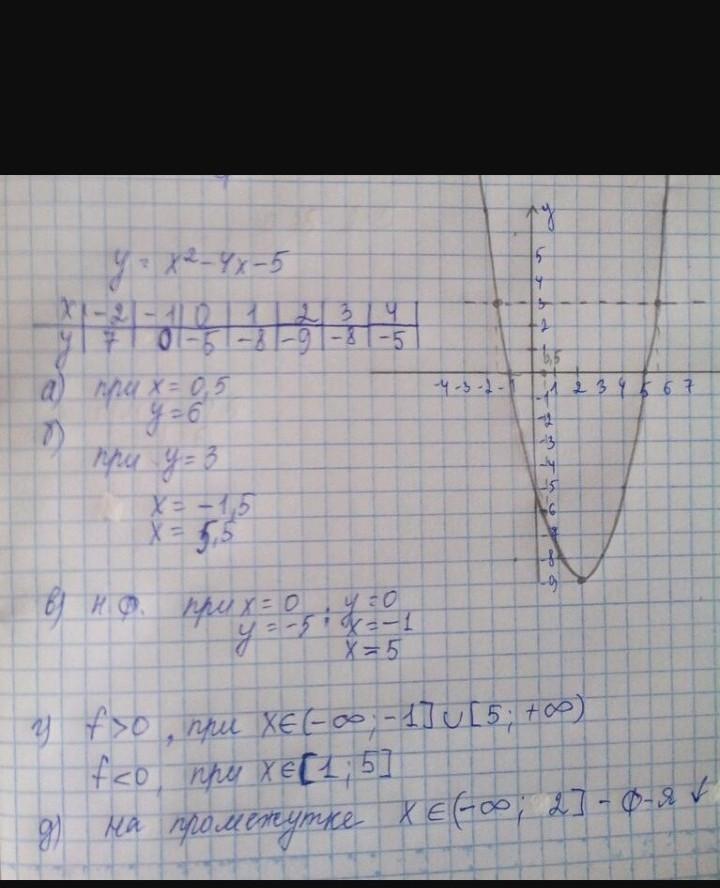 y = x²-4x-5
x | -2 | -1 | 0 | 1 | 2 | 3 | 4
y | 7 | 0 | -5 | -8 | -9 | -8 | -5
а) при x = 0,5
y = 6
б)
при y = 3
x = -1,5
x = 5,5
в) н.ф. при x = 0 ; y = 0
y = -5 x = -1
x = 5
г) f>0, при x∈(-∞; -1]∪[5; +∞)
f<0, при x∈[1; 5]
д) на промежутке x∈(-∞; 2] - ф-я ↓
y
5
4
3
2
1
0,5
-4 -3 -2 -1 1 2 3 4 5 6 7
-1
-2
-3
-4
-5
-6
-7
-8
-9